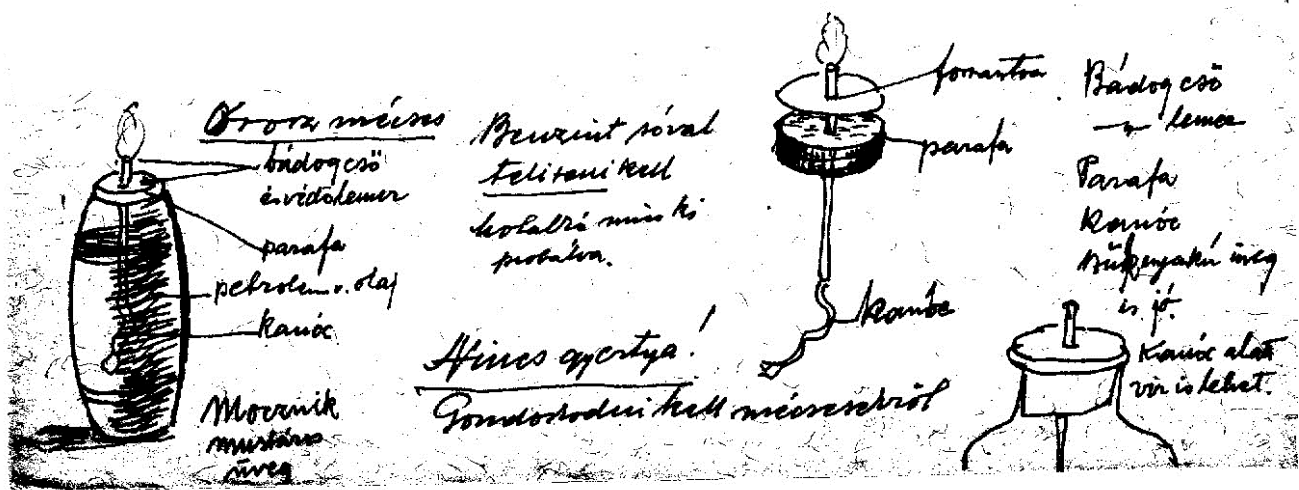 Orosz mécses
bádogcső
és védőlemez
parafa
petroleum v. olaj
kanóc
Mocznik
mustáros
üveg
Benzint sóval
telíteni kell
próbálva.
Nincs gyertya!
Gondoskodni kell mécsesekről
forrasztva
parafa
kanóc
Bádogcső
lemez
Parafa
Kanóc
üveg
is jó.
Kanóc alatt
víz is lehet.